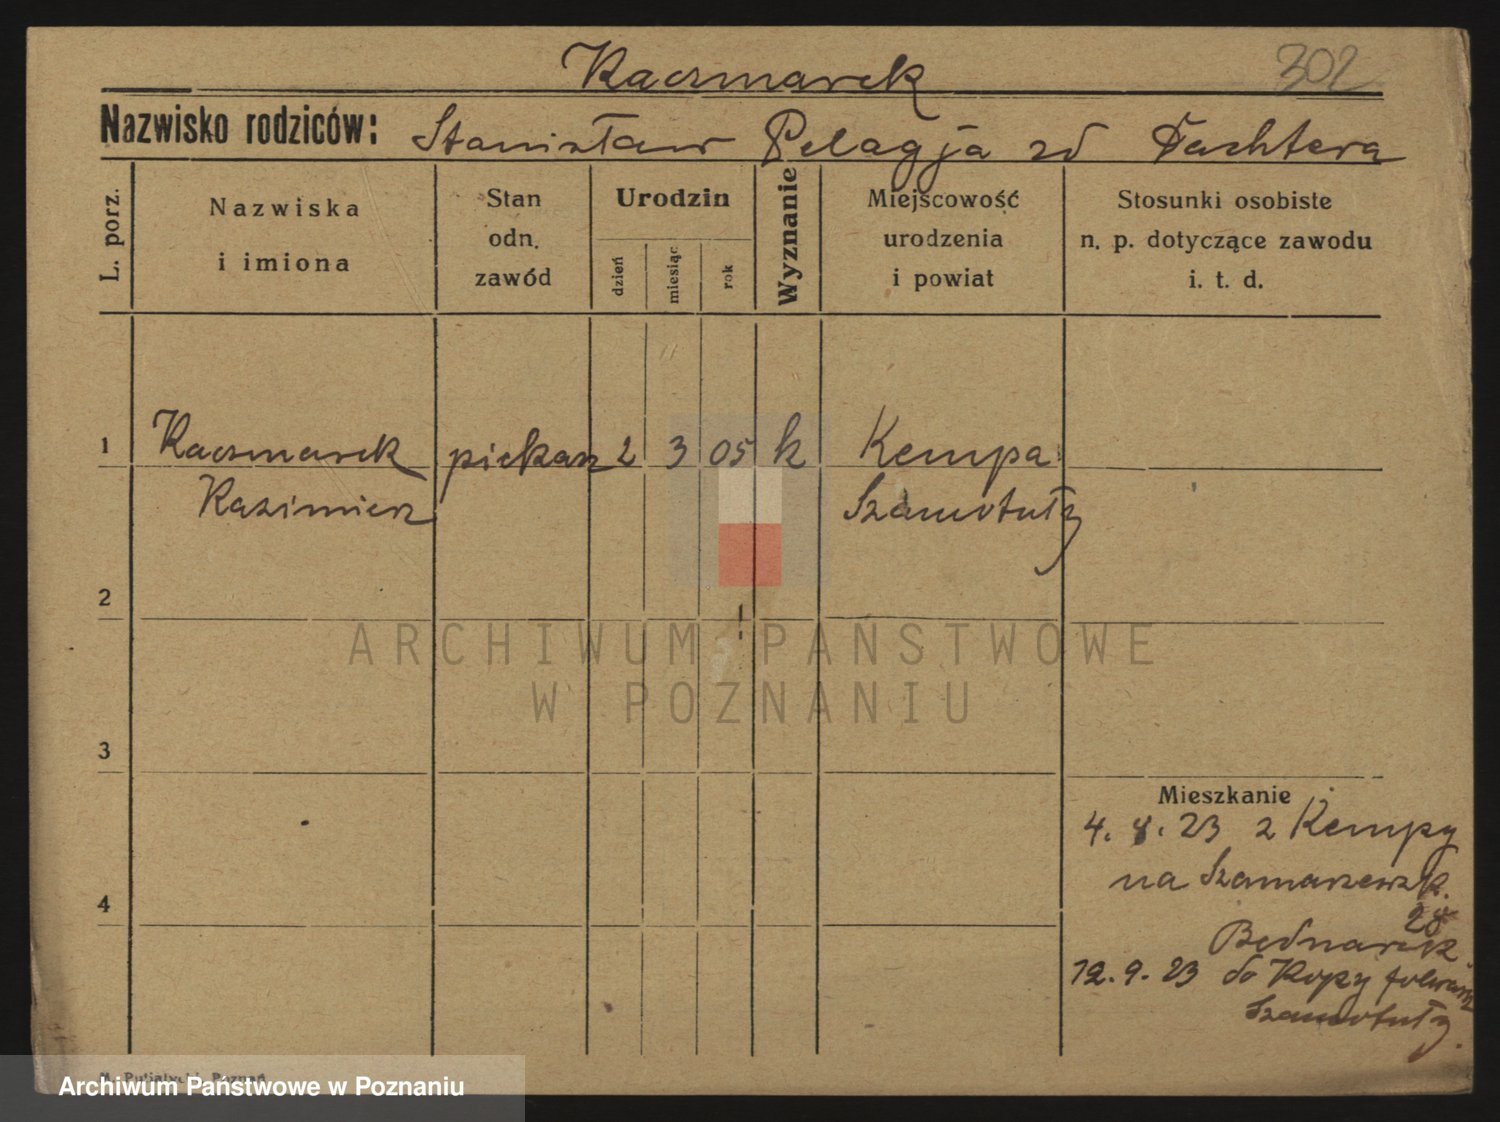 Kaczmarek 302
Nazwisko rodziców: Stanisław Pelagja zd Tachtera
L. porz.
Nazwiska
i imiona
Stan
odn.
zawód
Urodzin
dzień
miesiąc
rok
Wyznanie
Miejscowość
urodzenia
i powiat
Stosunki osobiste
n. p. dotyczące zawodu
i. t. d.
1 Kaczmarek piekarz 2 3 05 k Kempa
Kazimierz Szamotuły
2
3
4
Mieszkanie
4. 8. 23 z Kempy
na Szamarzewsk.
28
Bednarek
12. 9. 23 do Kopy folwark
Szamotuły.
ARCHIWUM PAŃSTWOWE
W POZNANIU
Poznań
Archiwum Państwowe w Poznaniu